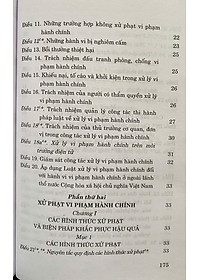 Điều 11. Những trường hợp không xử phạt vi phạm
hành chính 22
Điều 12*. Những hành vi bị nghiêm cấm 22
Điều 13. Bồi thường thiệt hại
Điều 14. Trách nhiệm đấu tranh phòng, chống vi
phạm hành chính
Điều 15. Khiếu nại, tố cáo và khởi kiện trong xử lý vi
phạm hành chính
Điều 16. Trách nhiệm của người có thẩm quyền xử lý
vi phạm hành chính
Điều 17*. Trách nhiệm quản lý công tác thi hành
pháp luật về xử lý vi phạm hành chính
Điều 18*. Trách nhiệm của thủ trưởng cơ quan, đơn
vị trong công tác xử lý vi phạm hành chính
Điều 18a*. Xử lý vi phạm hành chính trên môi
trường điện tử
Điều 19. Giám sát công tác xử lý vi phạm hành chính
Điều 20. Áp dụng Luật xử lý vi phạm hành chính đối
với hành vi vi phạm hành chính ở ngoài lãnh
thổ nước Cộng hòa xã hội chủ nghĩa Việt Nam
Phần thứ hai
XỬ PHẠT VI PHẠM HÀNH CHÍNH 33
Chương I
CÁC HÌNH THỨC XỬ PHẠT
VÀ BIỆN PHÁP KHẮC PHỤC HẬU QUẢ 33
Mục 1
CÁC HÌNH THỨC XỬ PHẠT 33
Nguyên tắc quy định các hình thức xử phạt 33
175